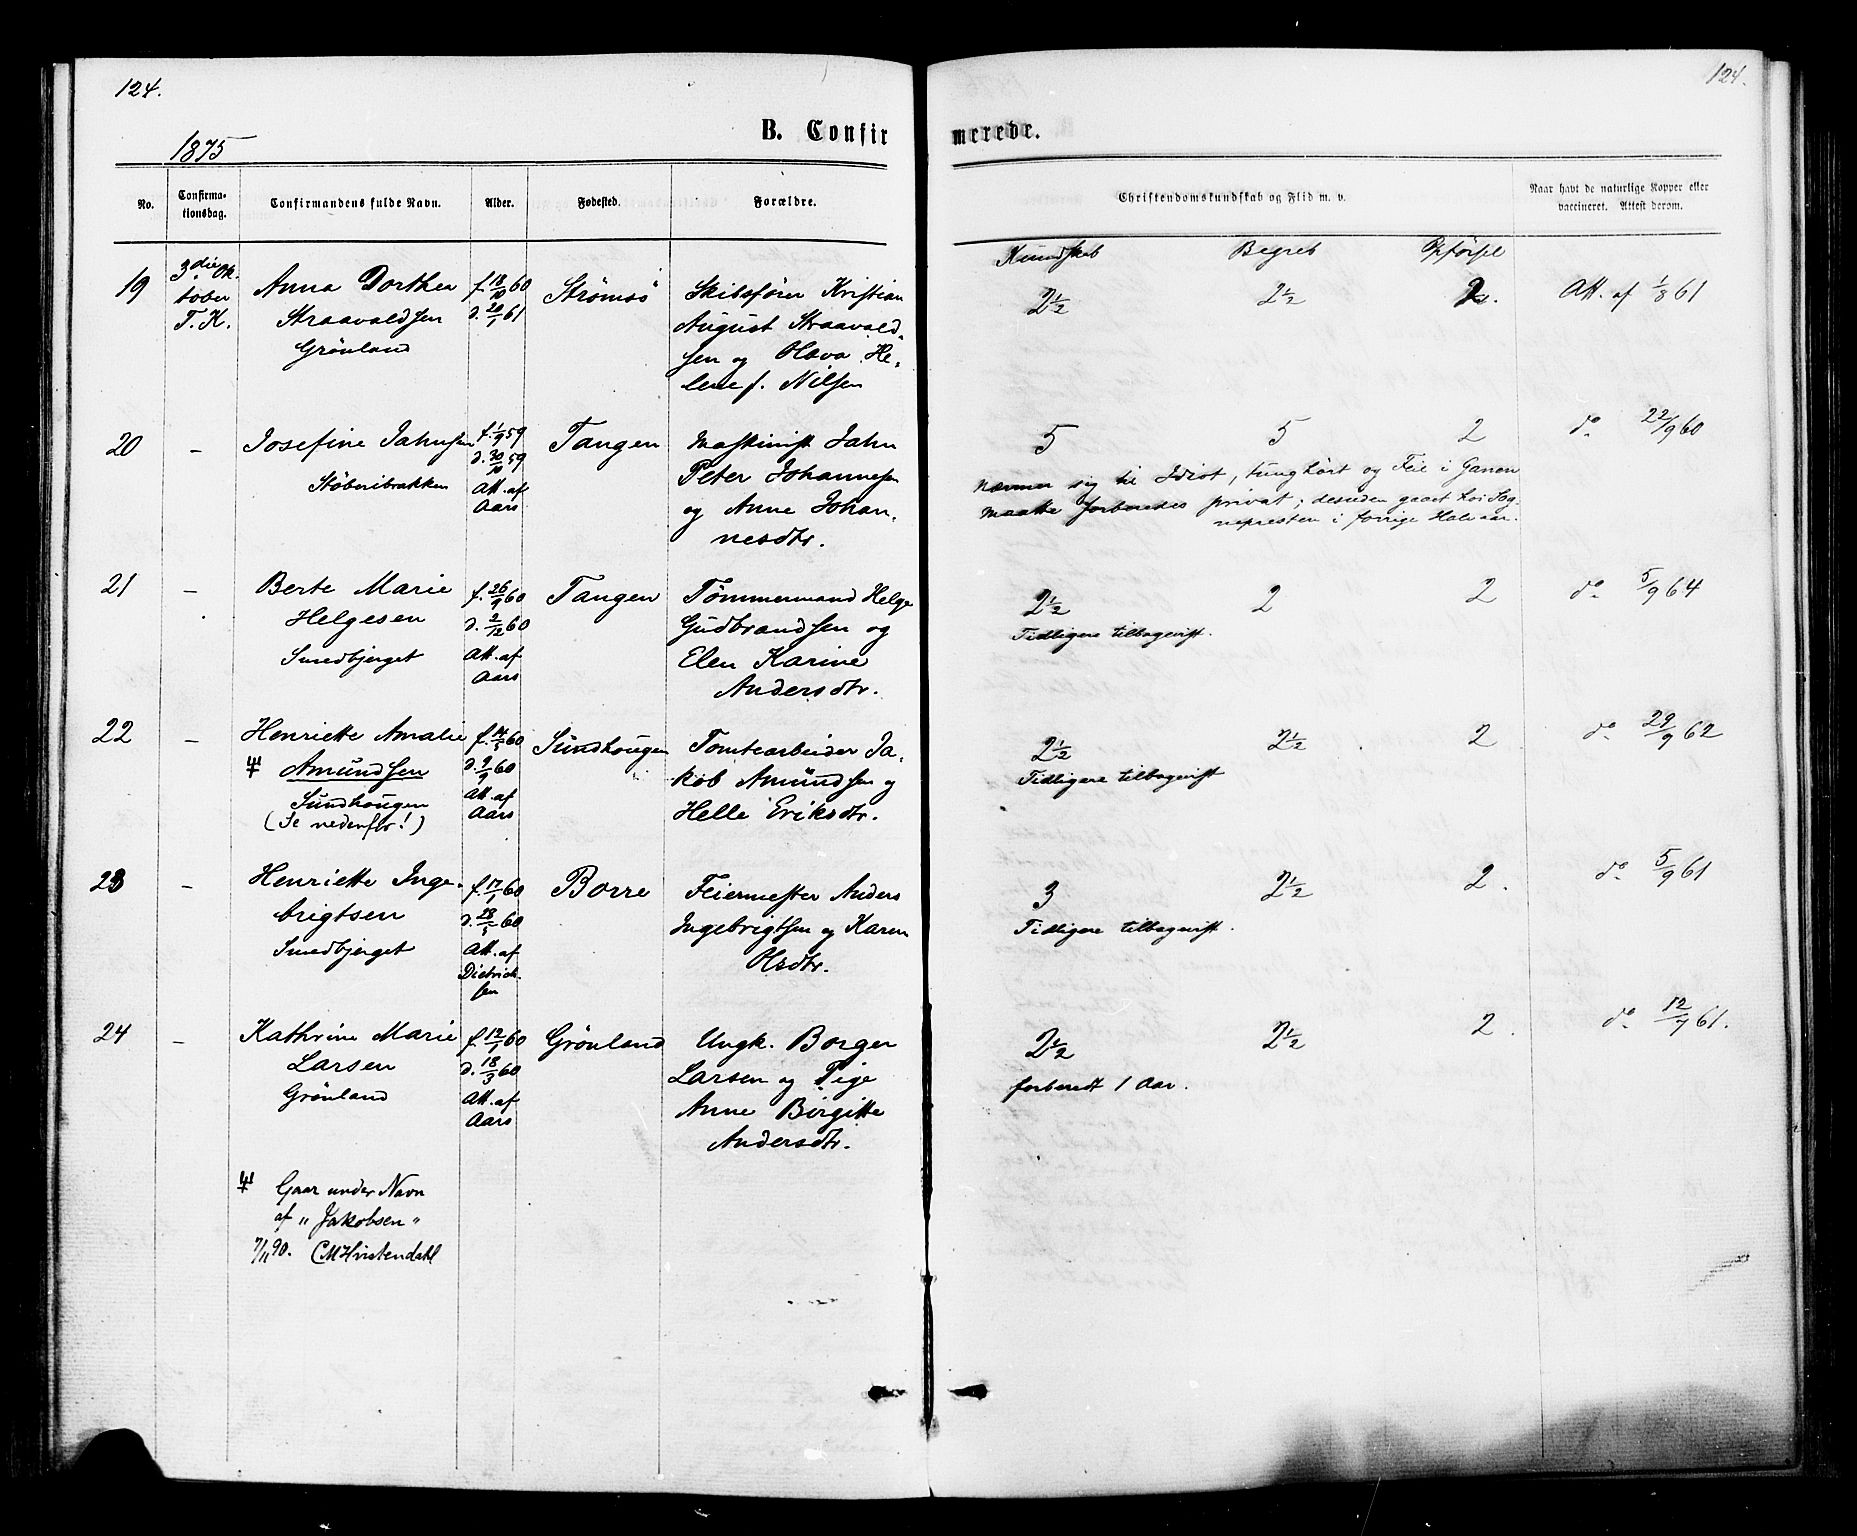 124.
124.
1875
B. Confirmerede.
No.
Confirma-
tionsdag.
Confirmandens fulde Navn.
Alder.
Fødested.
Forældre.
Christendomskundskab og Flid m. v.
Naar havt de naturlige Kopper eller
vaccineret. Attest derom.
Kundskab Begreb Opførsel
19
3die Ok.
tober
T. K.
Anna Dorthea
Straavaldsen
Grönland
f. 18/10 60
d. 20/1 61
Strömsö
Skibsfører Kristian
August Straavald-
sen og Olava He-
lene f. Nilsen
2 1/2 2 1/2 2. Att. af 1/8 61
20
–
Josefine Jahnsen
Støberibrakken
f. 1/9 59
d. 30/10 59
Att. af
Aars
Tangen
Maskinist Jahn
Peter Johannesen
og Anne Johan-
nesdtr.
5 5 2 do 22/9 60
nærmer sig til Idiot, tunghört og Feil i Ganen
Maatte forberedes privat; desuden gaaet hos Sog-
nepresten i forrige Halvaar.
21
–
Berte Marie
Helgesen
Smedbjerget
f. 26/9 60
d. 2/12 60
Att. af
Aars
Tangen
Tömmermand Helge
Gudbrandsen og
Elen Karine
Andersdtr.
2 1/2 2 2 do 5/9 64
Tidligere tilbagevist.
22
–
Henriette Amalie
Amundsen
Sundhougen
(Se nedenfor!)
f. 14/5 60
d. 9/9 60
Att. af
Aars
Sundhougen
Tomtearbeider Ja-
kob Amundsen og
Helle Eriksdtr.
2 1/2 2 1/2 2 do 29/9 62
Tidligere tilbagevist
23
–
Henriette Inge-
brigtsen
Smedbjerget
f. 17/1 60
d. 28/5 60
Att. af
Dietrich-
sen
Borre
Feiermester Anders
Ingebrigtsen og Karen
Olsdtr.
3 2 1/2 2. do 5/9 61
Tidligere tilbagevist.
24
–
Kathrine Marie
Larsen
Grönland
f. 12/1 60
d. 18/3 60
Att. af
Aars
Grönland
Ungk. Borger
Larsen og Pige
Anne Birgitte
Andersdtr.
2 1/2 2 1/2 2. do 12/7 61.
forberedt 1 Aar.
Gaar under Navn
af „Jakobsen“
7/11 90. CMHvistendahl